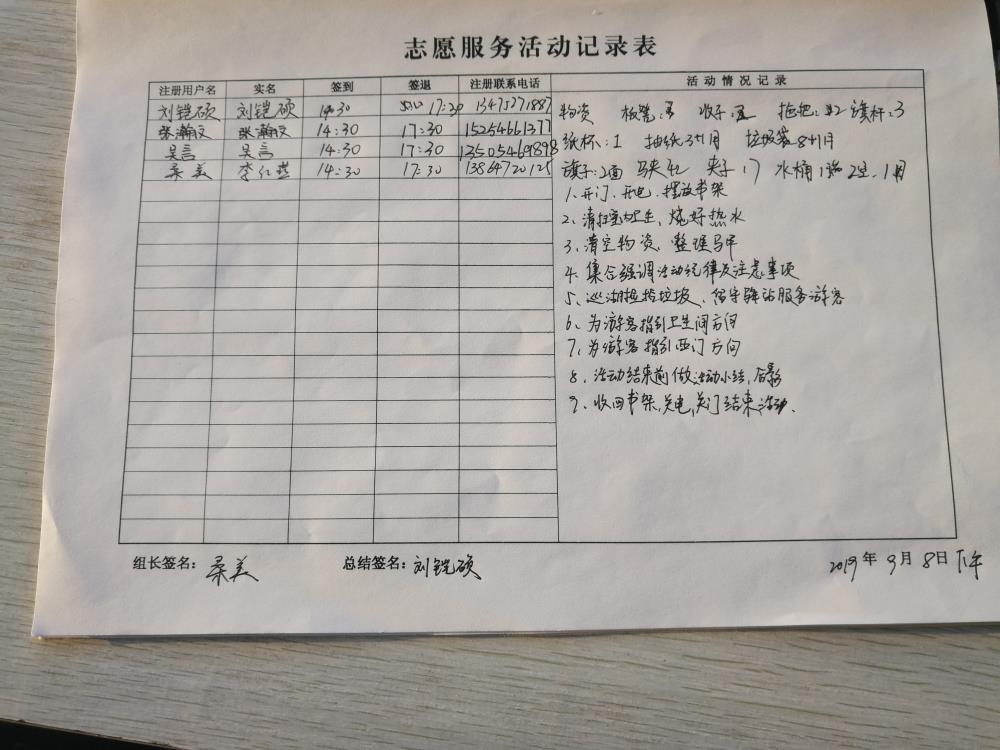 志愿服务活动记录表
注册用户名 实名 签到 签退 注册联系电话 活动情况记录
刘铠硕 刘铠硕 14:30 17:30 13475271887
张瀚汶 张瀚汶 14:30 17:30 15254661377
吴言 吴言 14:30 17:30 13505469898
柔美 14:30 17:30 13864720125
物资 板凳: 拖把: 旗杆:3
纸杯:1 抽纸 垃圾袋
旗子:2面 马夹 夹子:17 水桶
1、开门、开电、摆放书架
2、清扫室内卫生、烧好热水
3、清空物资、整理马甲
4、集合强调活动纪律及注意事项
5、巡湖捡拾垃圾、留守驿站服务游客
6、为游客指引卫生间方向
7、为游客指引西门方向
8、活动结束前做活动小结,合影
9、收回书架,关电,关门结束活动.
组长签名: 柔美 总结签名: 刘铠硕 2019年9月8日下午